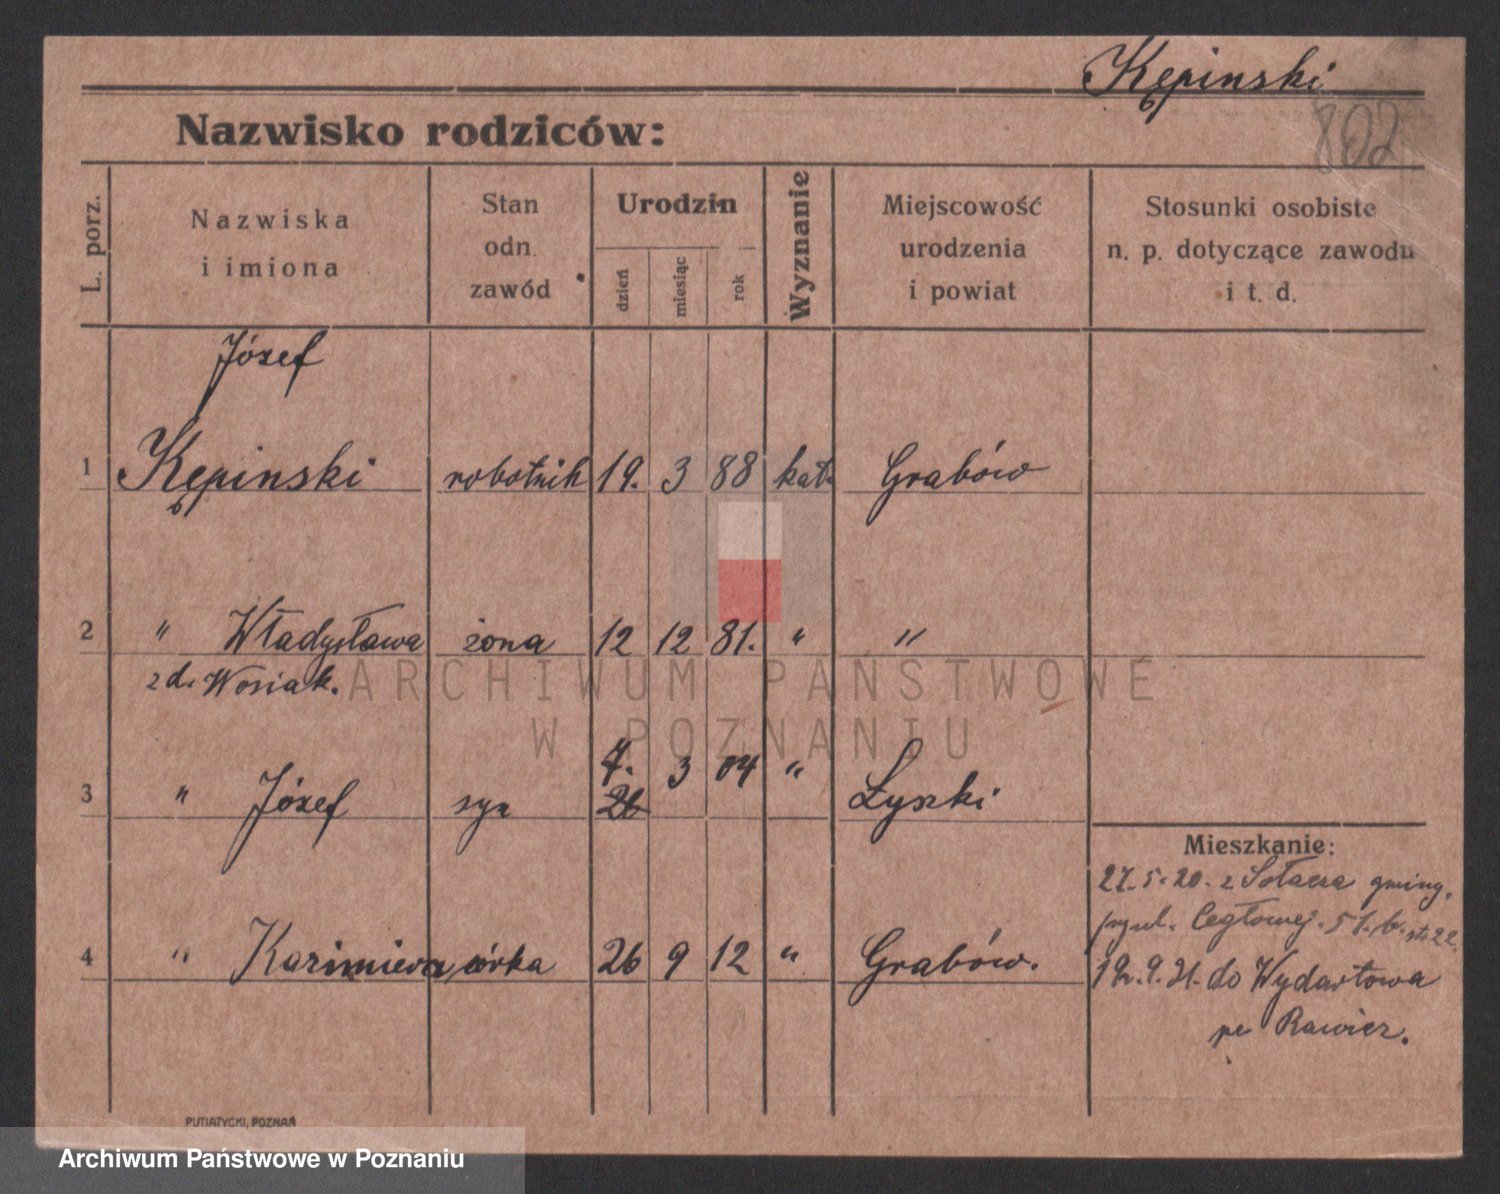 Kępinski
802
Nazwisko rodziców:
L. porz.
Nazwiska
i imiona
Stan
odn.
zawód
Urodzin
dzień
miesiąc
rok
Wyznanie
Miejscowość
urodzenia
i powiat
Stosunki osobiste
n. p. dotyczące zawodu
i t. d.
Józef
1 Kępinski robotnik 19. 3 88 kat. Grabów
2 " Władysława żona 12 12 81. " "
z d. Wosiak.
7. 3 04 "
3 " Józef syn 26 Łyszki
Mieszkanie:
27.5.20. z Sołacza
Cegłowej.
4 " Kazimiera córka 26 9 12 " Grabów.
do Wydartowa
Rawicz.
PUTIATYCKI, POZNAŃ
ARCHIWUM PAŃSTWOWE
W POZNANIU
Archiwum Państwowe w Poznaniu